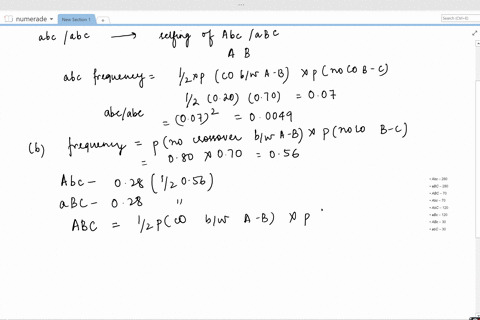 numerade
New Section 1
+
Search (Ctrl+E)
abc/abc ⟶ selfing of Abc/aBC
A B
abc frequency = 1/2 × p (CO b/w A-B) × p (no CO B-C)
1/2 (0.20) (0.70) = 0.07
abc/abc = (0.07)² = 0.0049
(b) frequency = p (no crossover b/w A-B) × p (no co B-C)
= 0.80 × 0.70 = 0.56
Abc - 0.28 (1/2 0.56)
aBC - 0.28 "
ABC = 1/2 p (CO b/w A-B) × p